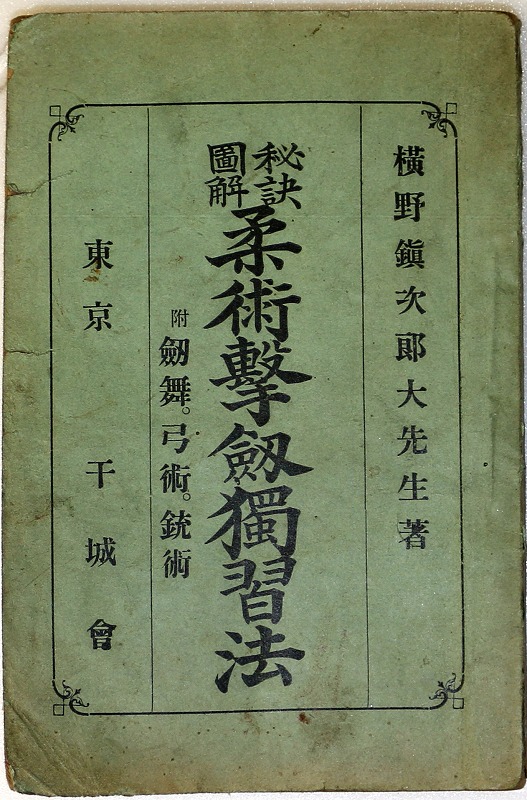 橫野鎭次郎大先生著
秘訣
圖解
柔術擊劔獨習法
附 劔舞。弓術。銃術
東京 干城會